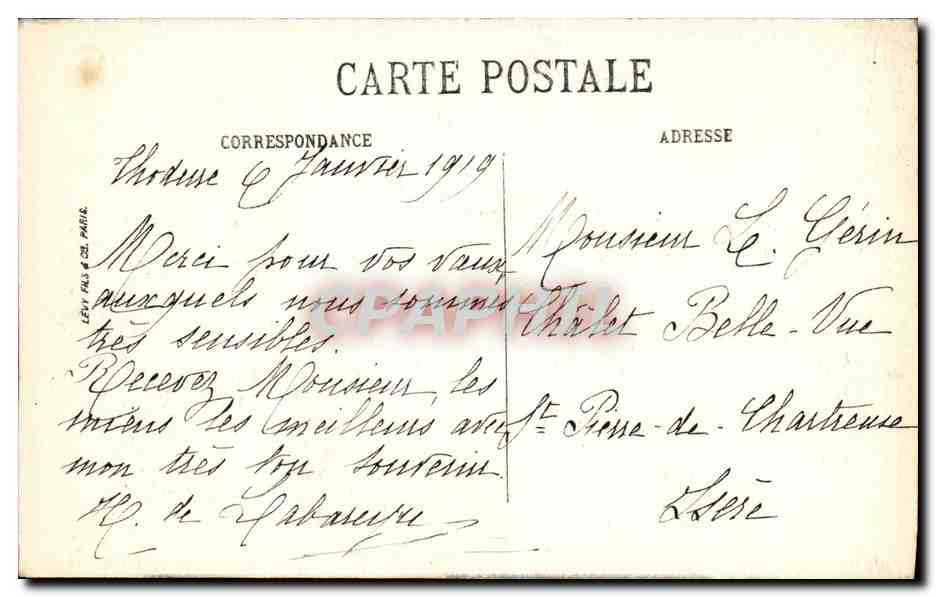 CARTE POSTALE
CORRESPONDANCE
ADRESSE
6 Janvier 1919
Merci pour vos vœux,
auxquels nous sommes
très sensibles.
Recevez Monsieur, les
miens les meilleurs avec
mon très bon souvenir.
H. de
Monsieur L. Gérin
Châlet Belle-Vue
St Pierre-de-Chartreuse
Isère
LEVY FILS & CIE. PARIS.
CPAPHIL